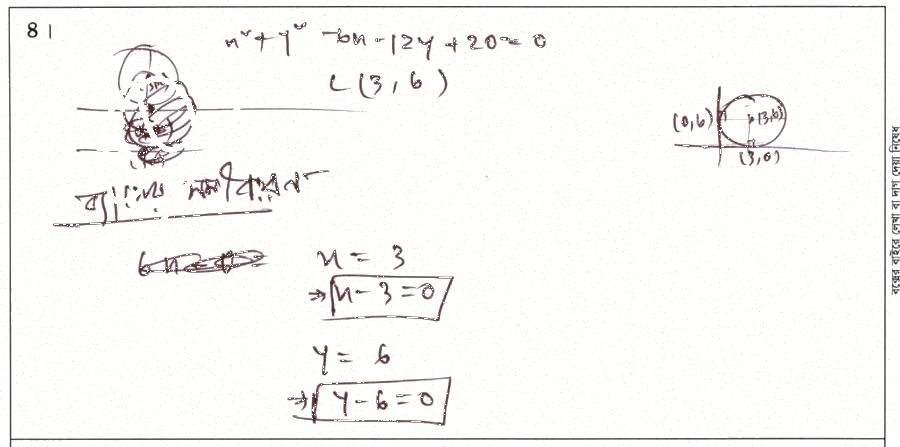 8 |
x² + y² - 6x - 12y + 20 = 0
C (3, 6)
(0, 6)
(3, 6)
(3, 0)
ব্যাসের সমীকরণ
x = 3
⇒ x - 3 = 0
y = 6
⇒ y - 6 = 0
বক্সের বাইরে লেখা বা দাগ দেয়া নিষেধ